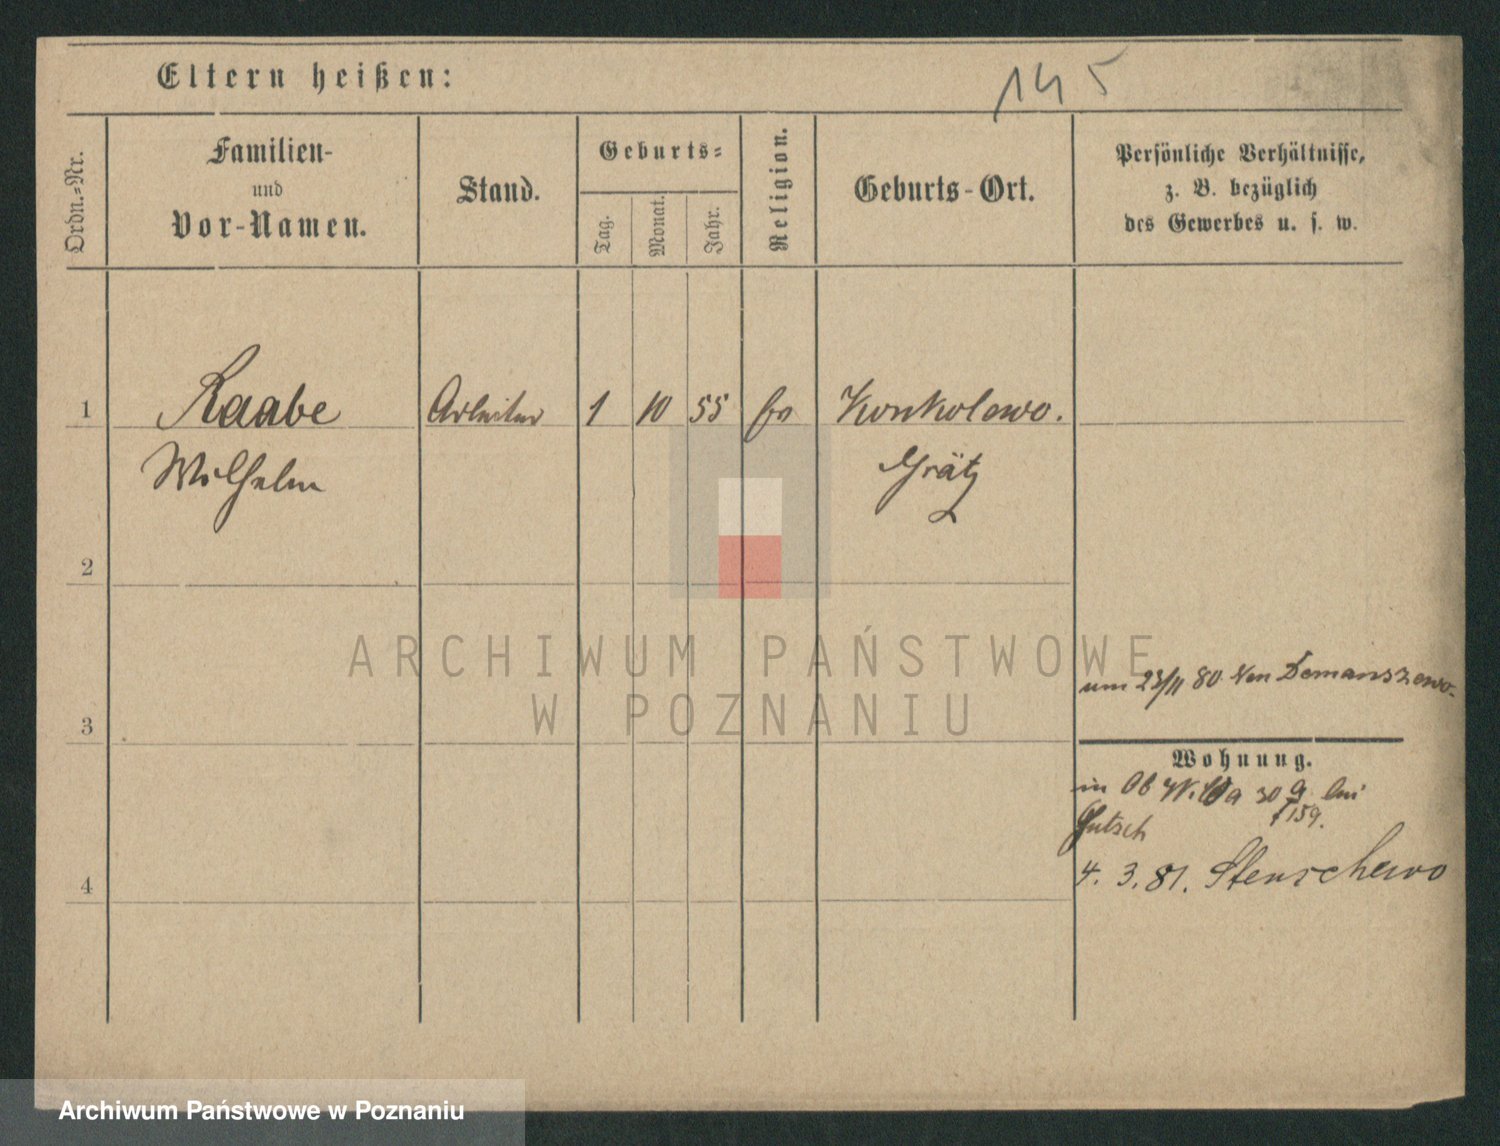 145
Eltern heißen:
Ordn.-Nr.
Familien-
und
Vor-Namen.
Stand.
Geburts-
Tag.
Monat.
Jahr.
Religion.
Geburts-Ort.
Persönliche Verhältnisse,
z. B. bezüglich
des Gewerbes u. s. w.
1
Raabe
Arbeiter
1
10
55
Konkolewo.
Wilhelm
Grätz
2
ARCHIWUM PAŃSTWOWE
W POZNANIU
3
um 23/11 80 von Demanszewo
Wohnung.
in Ob Wilda 30 a bei
f 159.
Gutsch
4. 3. 81. Stenschewo
4
Archiwum Państwowe w Poznaniu